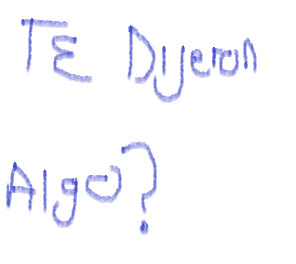 TE Dijeron
Algo?